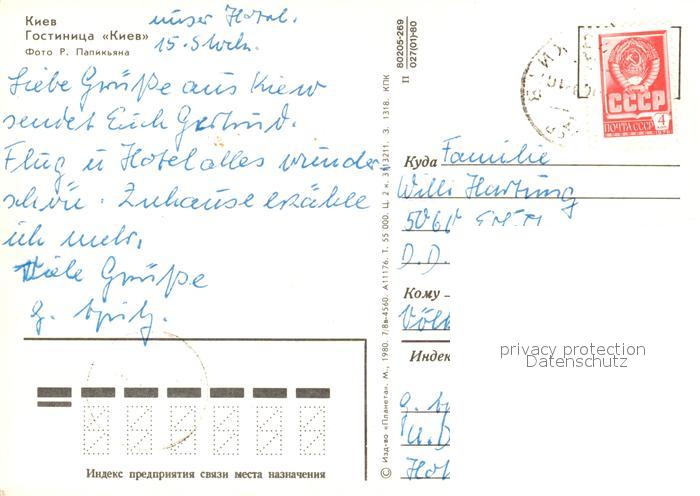 Киев
Гостиница «Киев»
Фото Р. Папикьяна
unser Hotel.
15. Stock.
Liebe Grüße aus Kiew
sendet Euch Gertrud.
Flug u Hotel alles wunder
schön. Zuhause erzähle
ich mehr.
Viele Grüße
G.
Индекс предприятия связи места назначения
© Изд-во «Планета». М., 1980. 7/8в-4560. А11176. Т. 55 000. Ц. 2 к. З. 1318. КПК
80205-269
П 027(01)-80
СССР
ПОЧТА СССР 4
Куда Familie
Willi Hartung
5060
D.D.
Кому
Индек
privacy protection
Datenschutz